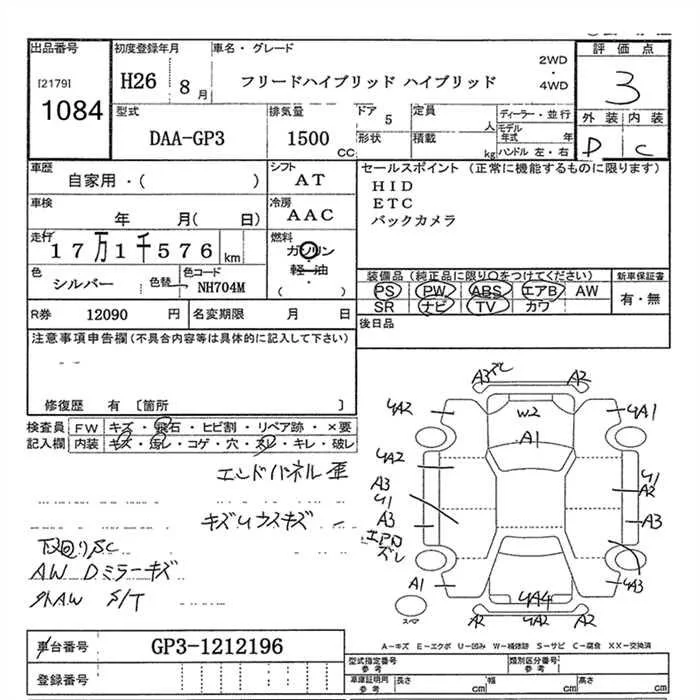 出品番号 初度登録年月 車名・グレード 2WD・4WD 評価点
[2179] 1084 H26 8月 フリードハイブリッド ハイブリッド 3
型式 排気量 ドア 5 定員 人 ディーラー・並行 外装 内装
DAA-GP3 1500 CC 形状 積載 kg モデル年式 年 ハンドル 左・右 D C
車歴 シフト セールスポイント (正常に機能するものに限ります)
自家用・( ) AT HID
車検 冷房 ETC
年 月( 日) AAC バックカメラ
走行 17万1千576 km 燃料 ガソリン
軽油
・
( )
色 シルバー 色替 色コード NH704M
装備品 (純正品に限り○をつけてください) 新車保証書
PS PW ABS エアB AW 有・無
SR ナビ TV カワ
R券 12090 円 名変期限 月 日 後日品
注意事項申告欄 (不具合内容等は具体的に記入して下さい)
修復歴 有 [箇所 ]
検査員 FW キズ・飛石・ヒビ割・リペア跡・×要
記入欄 内装 キズ・汚レ・コゲ・穴・スレ・キレ・破レ
エンドパネル 歪
キズUウスキズ
下回りSC
AW Dミラーキズ
外AW S/T
A3 ズレ A2
UA2 W2 UA1
A1
UA2 U1
A3 A2
U1
A3 A3
エアロ
ズレ
A1 UA3
UA4
スペア A2 A2 A2
A-キズ E-エクボ U-凹み W-補修跡 S-サビ C-腐食 XX-交換済
車台番号 GP3-1212196
型式指定番号 参考 類別区分番号 参考
登録番号 車庫証明用 参考 長さ cm 幅 cm 高さ cm